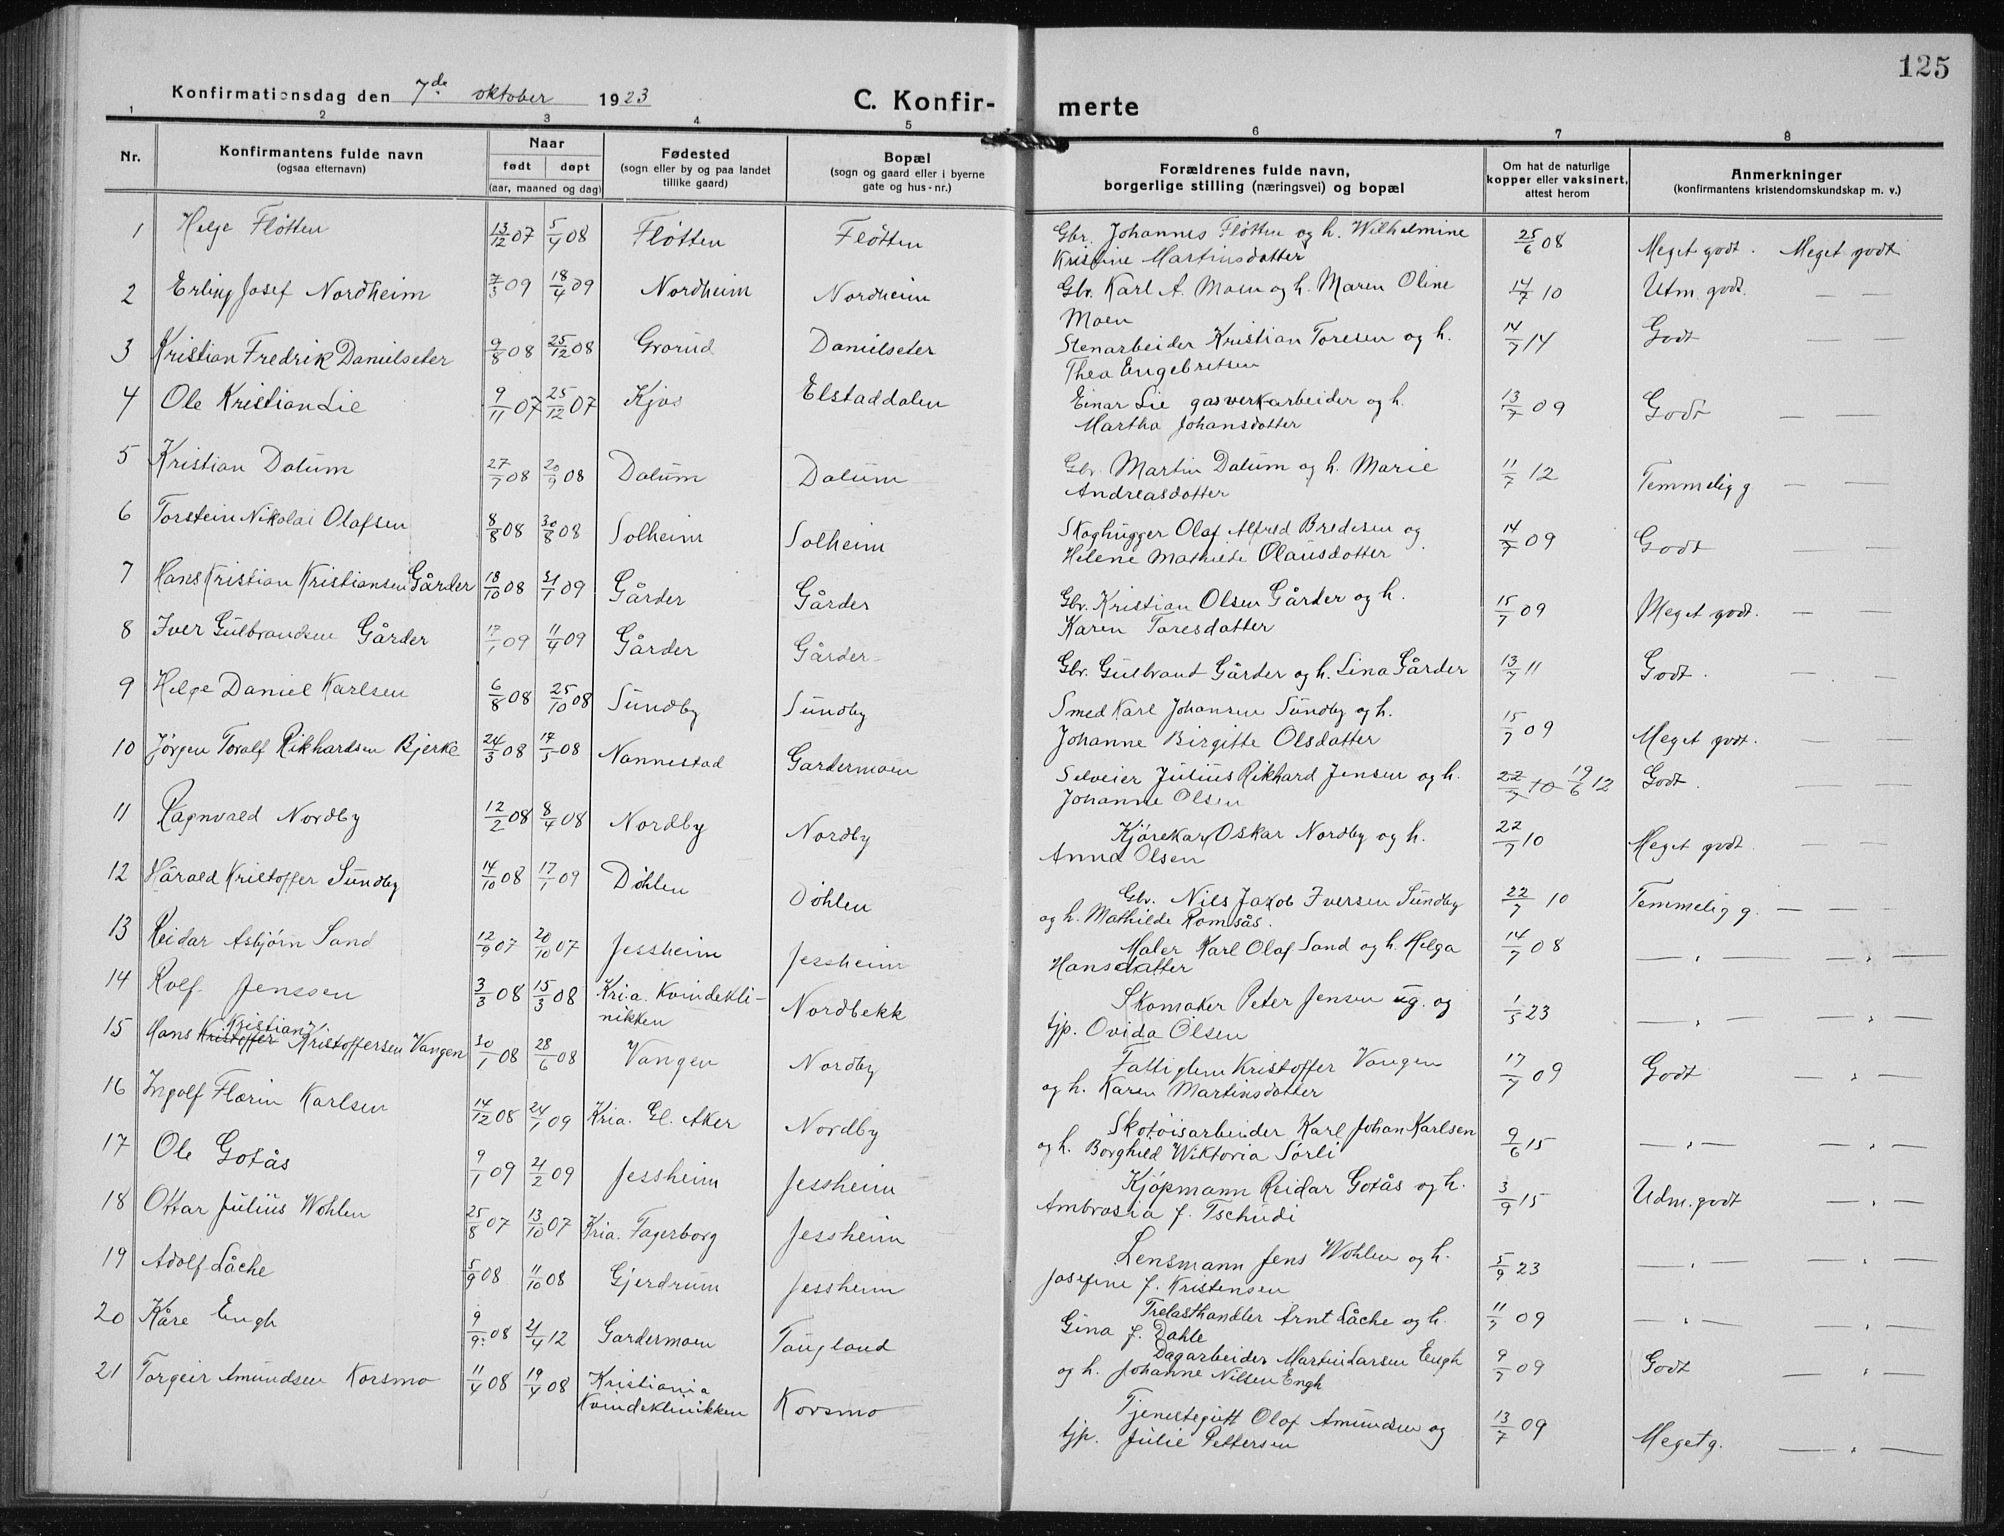 125
Konfirmationsdag den 7de oktober 1923
C. Konfir- merte
1 2 3 4 5 6 7 8
Nr.
Konfirmantens fulde navn
(ogsaa efternavn)
Naar
født døpt
(aar, maaned og dag)
Fødested
(sogn eller by og paa landet
tillike gaard)
Bopæl
(sogn og gaard eller i byerne
gate og hus-nr.)
Forældrenes fulde navn,
borgerlige stilling (næringsvei) og bopæl
Om hat de naturlige
kopper eller vaksinert,
attest herom
Anmerkninger
(konfirmantens kristendomskundskap m. v.)
1 Helge Fløtten 13/12 07 5/4 08 Fløtten Fløtten Gbr. Johannes Fløtten og h. Wilhelmine 25/6 08 Meget godt. Meget godt
Kristine Martinsdatter
2 Erling Josef Nordheim 7/3 09 18/4 09 Nordheim Nordheim Gbr. Karl A. Moen og h. Maren Oline 14/7 10 Utm. godt. — —
Moen
3 Kristian Fredrik Danielseter 9/8 08 25/12 08 Grorud Danielseter Stenarbeider Kristian Toresen og h. 14/7 14 Godt — —
Thea Engebretsen
4 Ole Kristian Lie 9/11 07 25/12 07 Kjos Elstaddalen Einar Lie gasverkarbeider og h. 13/7 09 Godt — —
Martha Johansdatter
5 Kristian Dalum 27/7 08 20/9 08 Dalum Dalum Gbr. Martin Dalum og h. Marie 11/7 12 Temmelig g — —
Andreasdatter
6 Torstein Nikolai Olafsen 8/8 08 30/8 08 Solheim Solheim Skoghugger Olaf Alfred Bredesen og 14/7 09 Godt —
Helene Mathilde Olausdatter
7 Hans Kristian Kristiansen Gårder 18/10 08 31/1 09 Gårder Gårder Gbr. Kristian Olsen Gårder og h. 15/7 09 Meget godt. — —
Karen Toresdatter
8 Iver Gulbrandsen Gårder 17/1 09 11/4 09 Gårder Gårder Gbr. Gulbrand Gårder og h. Lina Gårder 13/7 11 Godt. — —
9 Helge Daniel Karlsen 6/8 08 25/10 08 Sundby Sundby Smed Karl Johansen Sundby og h. 15/7 09 Meget godt. — —
Johanne Birgitte Olsdatter
10 Jörgen Toralf Rikhardsen Bjerke 24/3 08 17/5 08 Nannestad Gardermoen Selveier Julius Rikhard Jensen og h. 22/7 10 19/6 12 Godt. — —
Johanne Olsen
11 Ragnvald Nordby 12/2 08 8/4 08 Nordby Nordby Kjørekar Oskar Nordby og h. 22/7 10 Meget godt. — —
Anna Olsen
12 Harald Kristoffer Sundby 14/10 08 17/1 09 Döhlen Döhlen Gbr. Nils Jakob Iversen Sundby 22/7 10 Temmelig g. — —
og h. Mathilde Romsås.
13 Reidar Asbjørn Sand 12/9 07 20/10 07 Jessheim Jessheim Maler Karl Olaf Sand og h. Helga 14/7 08 — „ — — „ —
Hansdatter
14 Rolf Jenssen 3/3 08 15/3 08 Kri.a. Kvindekli- Nordbekk Skomaker Peter Jensen ug. og 1/5 23 — „ — — „ —
nikken tjp. Ovida Olsen
15 Hans Kristoffer Kristian Kristoffersen Vangen 30/1 08 28/6 08 Vangen Nordby Fattiglem Kristoffer Vangen 17/7 09 Godt — „ —
og h. Karen Martinsdatter
16 Ingolf Florin Karlsen 14/12 08 24/1 09 Kria. Gl. Aker Nordby Skotøisarbeider Karl Johan Karlsen 9/6 15 — „ — — „ —
og h. Borghild Wiktoria Sörli
17 Ole Gotås 9/1 09 21/2 09 Jessheim Jessheim Kjöpmann Reidar Gotås og h. 3/9 15 Udm. godt — „ —
Ambrosia f. Tschudi
18 Ottar Julius Wohlen 25/8 07 13/10 07 Kria. Fagerborg Jessheim Lensmann Jens Wohlen og h. 5/9 23 — „ — — „ —
Josefine f. Kristensen
19 Adolf Låche 5/9 08 11/10 08 Gjerdrum Jessheim Trelasthandler Arnt Låche og h. 11/7 09 — „ — — „ —
Gina f. Dahle
20 Kåre Engh 9/9 08 21/4 12 Gardermoen Taugland Dagarbeider Martin Larsen Engh 9/7 09 Godt — „ —
og h. Johanne Nilsen Engh
21 Torgeir Amundsen Korsmo 11/4 08 19/4 08 Kristiania Korsmo Tjenestegutt Olaf Amundsen og 13/7 09 Meget g. — „ —
Kvindeklinikken tjp. Julie Pettersen